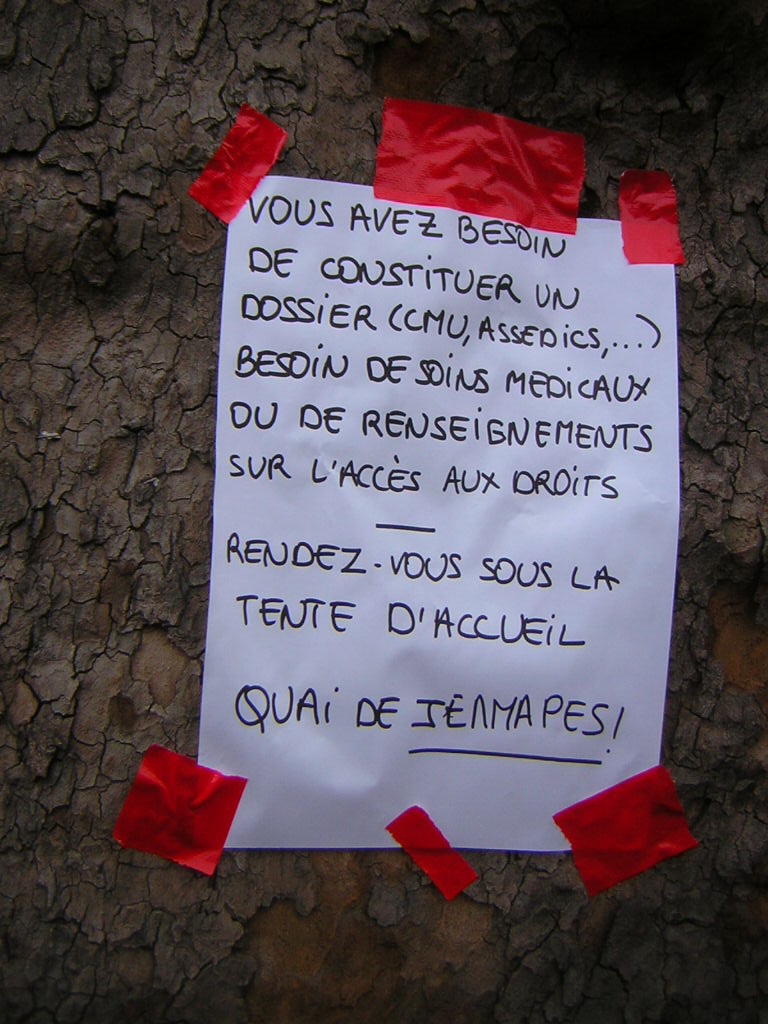 VOUS AVEZ BESOIN
DE CONSTITUER UN
DOSSIER (CMU, ASSEDiCS,...)
BESOiN DE SOiNS MEDiCAUX
OU DE RENSEiGNEMENTS
SUR L'ACCÈS AUX DROiTS
—
RENDEZ-VOUS SOUS LA
TENTE D'ACCUEiL
QUAi DE JEMMAPES!